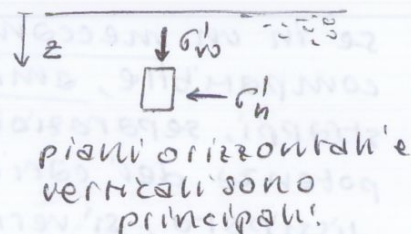 z
σ'v0
σ'h
piani orizzontali e
verticali sono
principali.